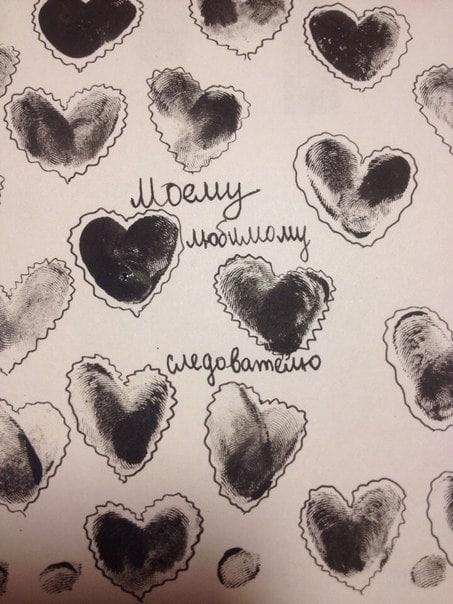 Моему
любимому
следователю